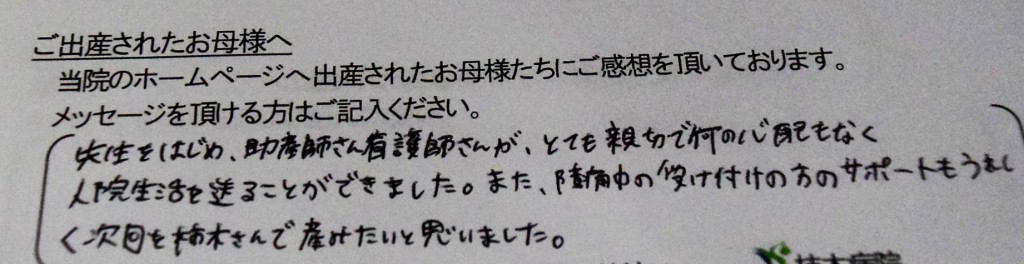 ご出産されたお母様へ
当院のホームページへ出産されたお母様たちにご感想を頂いております。
メッセージを頂ける方はご記入ください。
先生をはじめ、助産師さん看護師さんが、とても親切で何の心配もなく
入院生活を送ることができました。また、陣痛中の受け付けの方のサポートもうれし
く次回も柿木さんで産みたいと思いました。